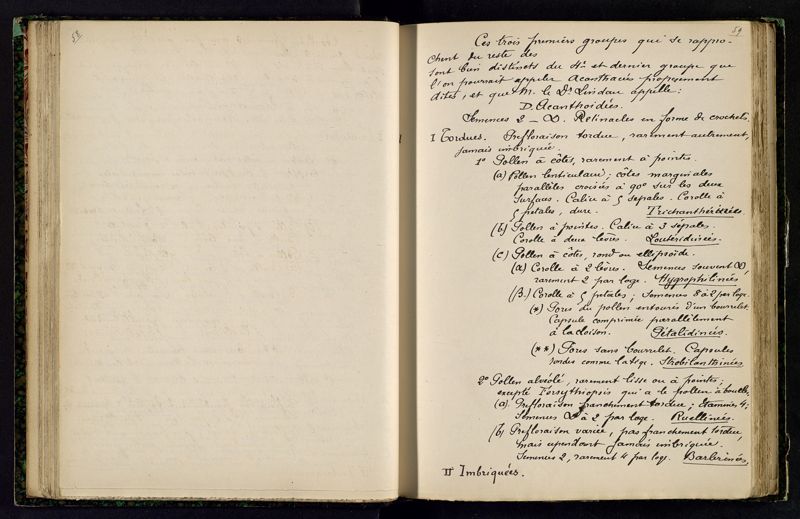 58
59
Ces trois premiers groupes qui se rappro-
chent du reste des
sont bien distincts du 4e et dernier groupe que
l'on pourrait appeler Acanthacées proprement
dites, et que M. le Dr Lindau appelle:
D. Acanthoidées.
Semences 2 – ∞. Rétinacles en forme de crochets.
I Tordues. Préfloraison tordue, rarement autrement,
jamais imbriquée.
1º Pollen à côtes, rarement à pointes.
(a) Pollen lenticulaire; côtes marginales
parallèles croisées à 90º sur les deux
surfaces. Calice à 5 sépales. Corolle à
5 pétales, dure. Trichanthérées.
(b) Pollen à pointes. Calice à 3 sépales.
Corolle à deux lèvres. Louteridinées.
(c) Pollen à côtes, rond ou ellipsoïde.
(α) Corolle à 2 lèvres. Semences souvent ∞,
rarement 2 par loge. Hygrophilinées
(β.) Corolle à 5 pétales; Semences 8 à 2 par loge.
(*) Pores du pollen entourés d'un bourrelet.
Capsule comprimée parallèlement
à la cloison. Pétalidinées.
(**) Pores sans bourrelet. Capsules
rondes comme la tige. Strobilanthinées
2º Pollen alvéolé, rarement lisse ou à pointes;
excepté Forsythiopsis qui a le pollen à boucles.
(a) Préfloraison franchement tordue; étamines 4;
Semences ∞ à 2 par loge. Ruellinées.
(b) Préfloraison variée, pas franchement tordue,
mais cependant jamais imbriquée.
Semences 2, rarement 4 par loge. Barlerinées,
II Imbriquées.